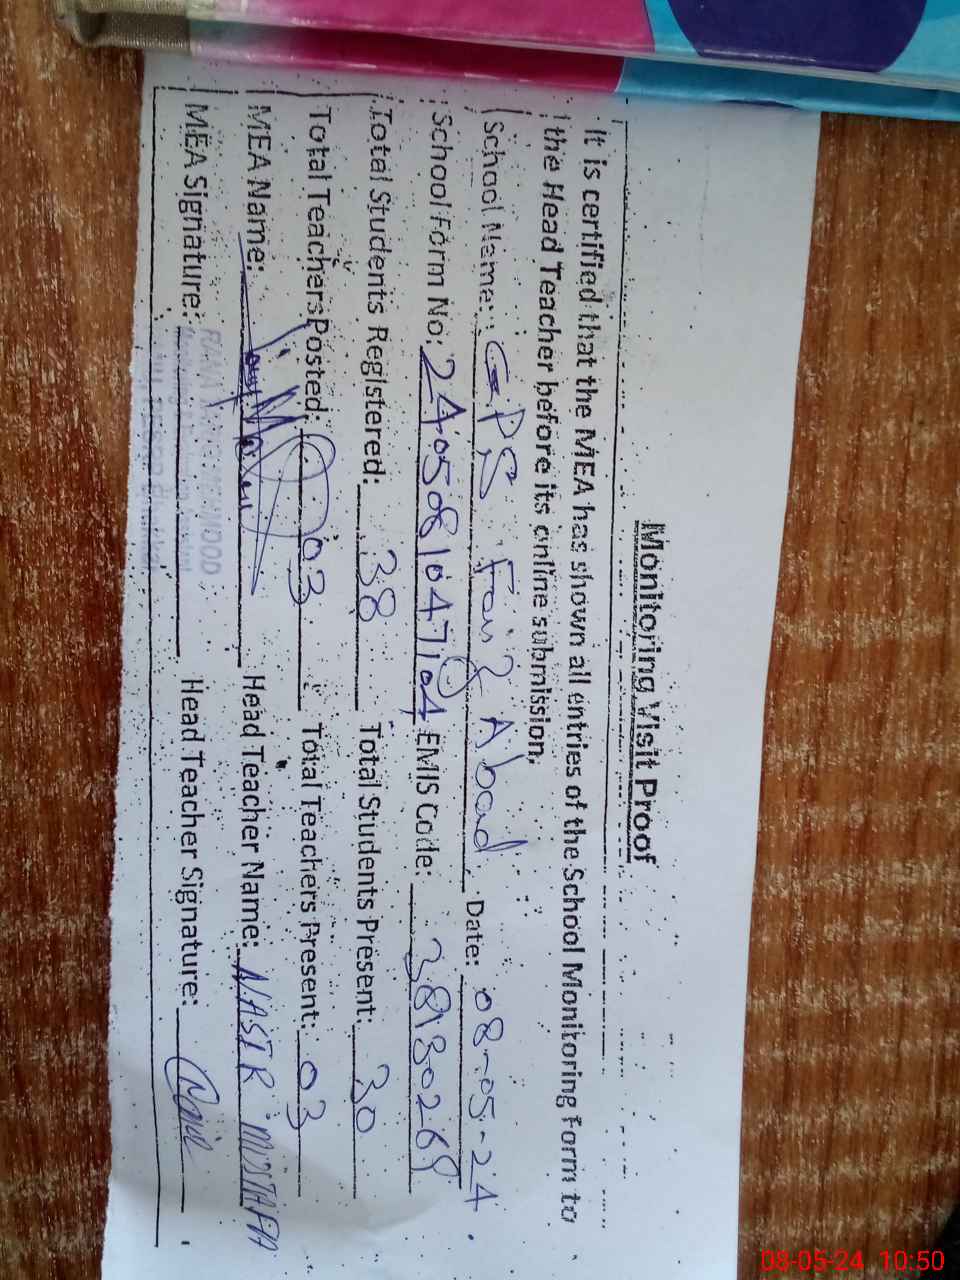 Monitoring Visit Proof
It is certified that the MEA has shown all entries of the School Monitoring Form to
the Head Teacher before its online submission.
School Name: GPS Faiz Abad Date: 08-05-24
School Form No: 2405081047104 EMIS Code: 38130269
Total Students Registered: 38 Total Students Present: 30
Total Teachers Posted: 03 Total Teachers Present: 03
MEA Name: Head Teacher Name: NASIR MUSTAFA
MEA Signature: Head Teacher Signature:
08-05-24 10:50